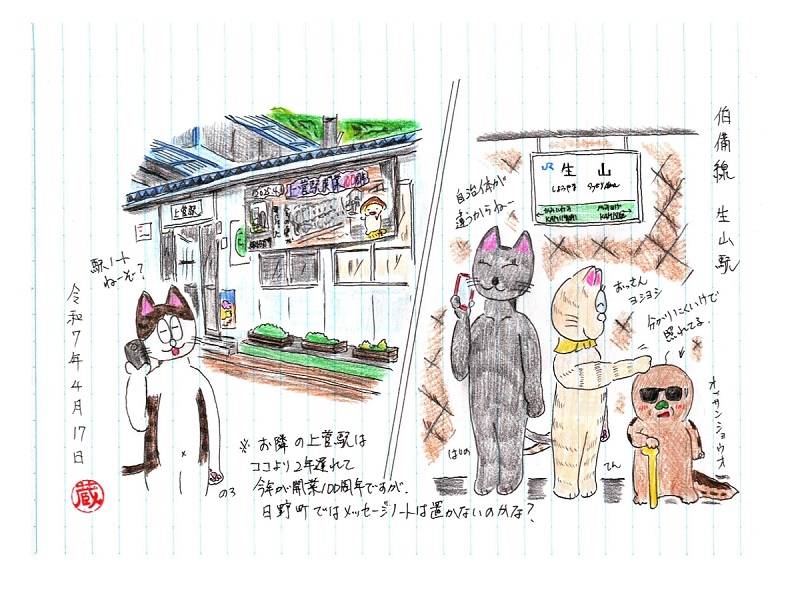 伯備線 生山駅
生山
しょうやま
自治体が
違うからね〜
おっさん
ヨシヨシ
分かりにくいけど
照れてる。
オッサンショウウオ
はしの
てん
上菅駅
駅ノート
ね〜ぞ?
のろ
※ お隣の上菅駅は
ココより2年遅れて
今年が開業100周年ですが、
日野町ではメッセージノートは置かないのかな?
令和7年4月17日
蔵